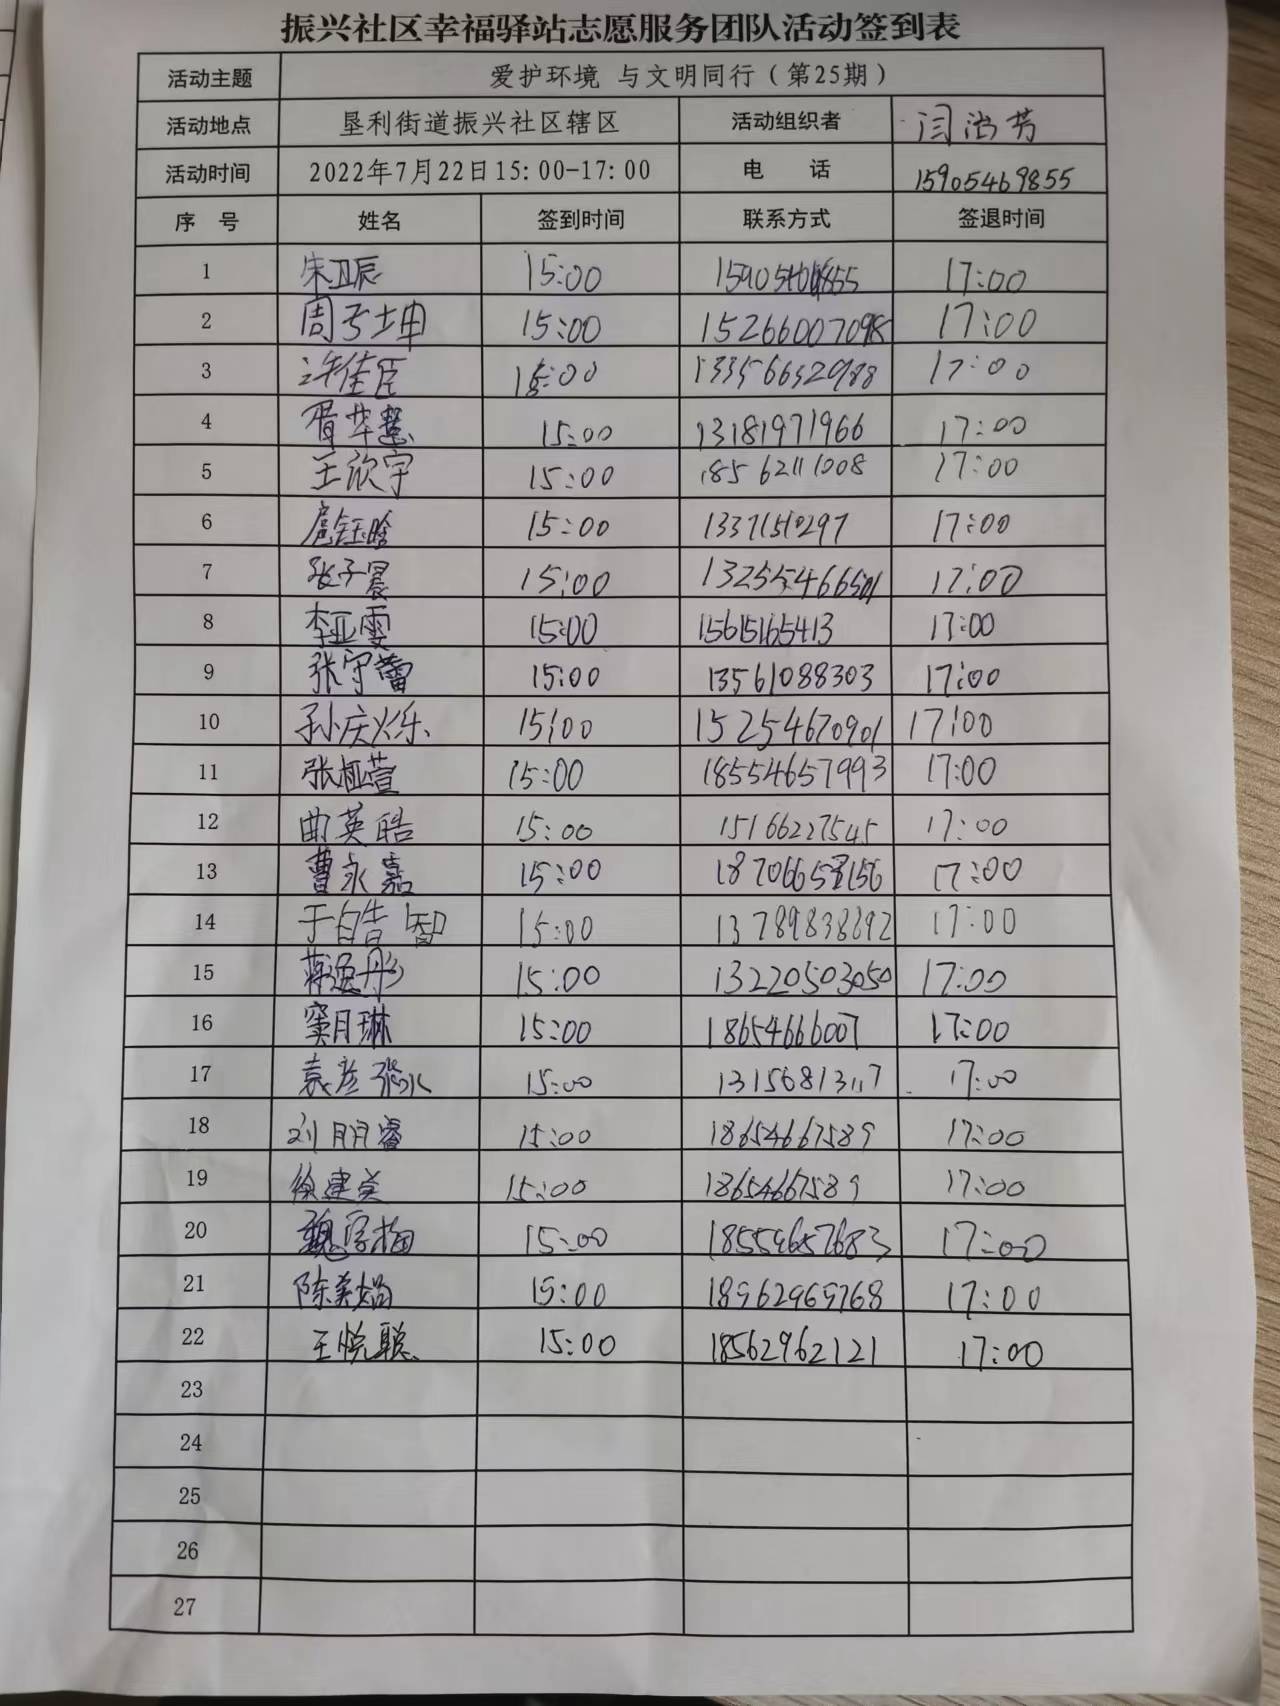 振兴社区幸福驿站志愿服务团队活动签到表
活动主题 爱护环境 与文明同行（第25期）
活动地点 垦利街道振兴社区辖区 活动组织者 闫尚芳
活动时间 2022年7月22日15:00-17:00 电 话 15905469855
序 号 姓名 签到时间 联系方式 签退时间
1 朱卫辰 15:00 17:00
2 15:00 15266007098 17:00
3 许佳臣 15:00 13356632988 17:00
4 胥华慧 15:00 13181971966 17:00
5 王欣宇 15:00 18562111008 17:00
6 扈钰晗 15:00 13371510297 17:00
7 张子晨 15:00 13255466501 17:00
8 李亚雯 15:00 15615165413 17:00
9 张守蕾 15:00 13561088303 17:00
10 孙庆烁 15:00 15254670901 17:00
11 张桓萱 15:00 18554657993 17:00
12 曲英皓 15:00 15166227545 17:00
13 曹永嘉 15:00 17:00
14 于皓智 15:00 13789838292 17:00
15 蒋逸彤 15:00 13220503050 17:00
16 窦月琳 15:00 18654666007 17:00
17 袁彦 15:00 13156813117 17:00
18 刘明睿 15:00 18654667589 17:00
19 徐建美 15:00 18654667589 17:00
20 魏学梅 15:00 18554657683 17:00
21 陈美娟 15:00 18962969768 17:00
22 王悦聪 15:00 18562962121 17:00
23
24
25
26
27